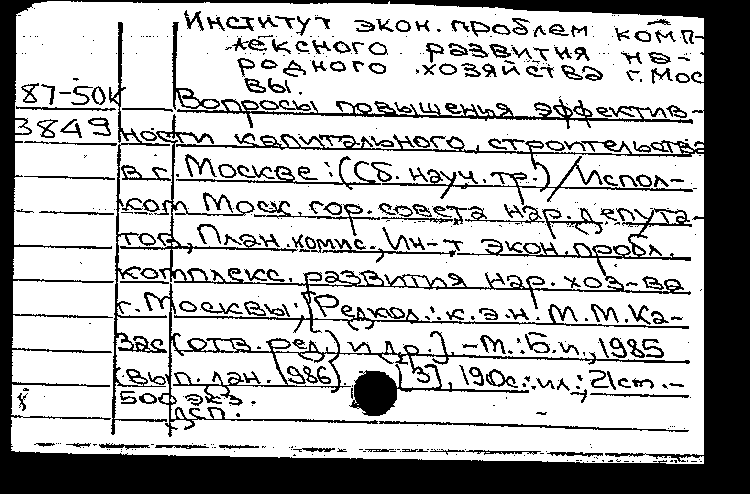 Институт экон. проблем комп-
лексного развития на-
родного хозяйства г. Мос
вы.
87-50к Вопросы повышенья эффектив-
3849 ности капитального, строительства
в г. Москве: (Сб. науч. тр.) / Испол-
ком Моск. гор. совета нар. депута-
тов, План. комис., Ин-т экон. пробл.
комплекс. развития нар. хоз-ва
г. Москвы; [Редкол.: к.э.н. М.М. Ка-
зас (отв. ред.) и др.]. - М.: Б.и., 1985
(вып. дан. 1986). [3], 190с.: ил.; 21см. -
500 экз.
ДСП.